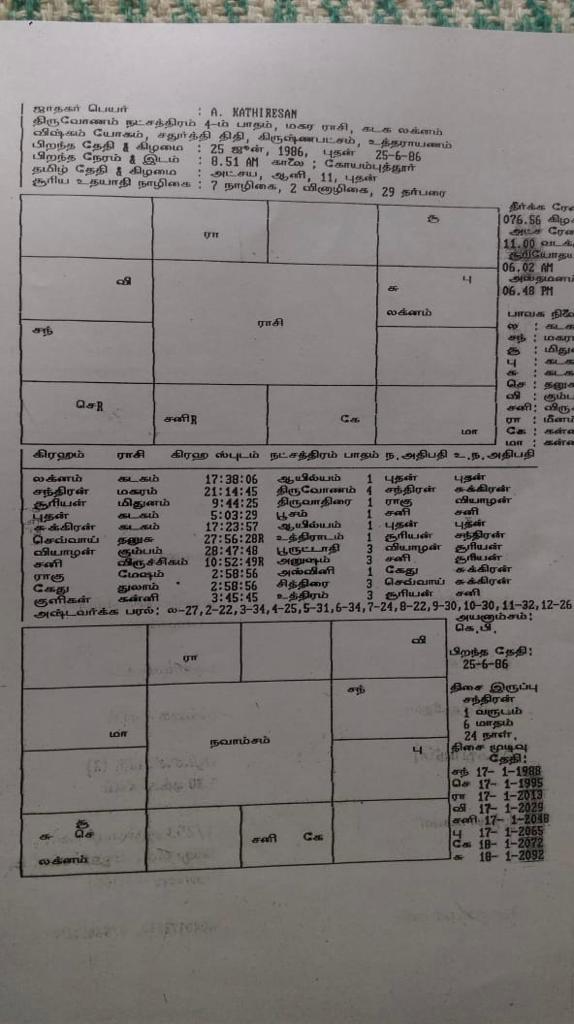 ஜாதகர் பெயர் : A. KATHIRESAN
திருவோணம் நட்சத்திரம் 4-ம் பாதம், மகர ராசி, கடக லக்னம்
விஷ்கம் யோகம், சதுர்த்தி திதி, கிருஷ்ணபட்சம், உத்தராயணம்
பிறந்த தேதி & கிழமை : 25 ஜூன், 1986, புதன் 25-6-86
பிறந்த நேரம் & இடம் : 8.51 AM காலை ; கோயம்புத்தூர்
தமிழ் தேதி & கிழமை : அட்சய, ஆனி, 11, புதன்
சூரிய உதயாதி நாழிகை : 7 நாழிகை, 2 வினாழிகை, 29 தர்பரை
ரா
சூ
வி
பு
சு
லக்னம்
ராசி
சந்
செR
சனிR
கே
மா
தீர்க்க ரே
076.56 கிழ
அட்ச ரே
11.00 வடக்
சூரியோதய
06.02 AM
அஸ்தமனம்
06.48 PM
பாவக நிலை
ல : கடக
சந் : மகர
சூ : மிதுன
பு : கடக
சு : கடக
செ : தனுசு
வி : கும்ப
சனி: விருச்
ரா : மீனம்
கே : கன்னி
மா : கன்னி
கிரஹம் ராசி கிரஹ ஸ்புடம் நட்சத்திரம் பாதம் ந.அதிபதி உ.ந.அதிபதி
லக்னம் கடகம் 17:38:06 ஆயில்யம் 1 புதன் புதன்
சந்திரன் மகரம் 21:14:45 திருவோணம் 4 சந்திரன் சுக்கிரன்
சூரியன் மிதுனம் 9:44:25 திருவாதிரை 1 ராகு வியாழன்
புதன் கடகம் 5:03:29 பூசம் 1 சனி சனி
சுக்கிரன் கடகம் 17:23:57 ஆயில்யம் 1 புதன் புதன்
செவ்வாய் தனுசு 27:56:28R உத்திராடம் 1 சூரியன் சந்திரன்
வியாழன் கும்பம் 28:47:48 பூரட்டாதி 3 வியாழன் சூரியன்
சனி விருச்சிகம் 10:52:49R அனுஷம் 3 சனி சூரியன்
ராகு மேஷம் 2:58:56 அஸ்வினி 1 கேது சுக்கிரன்
கேது துலாம் 2:58:56 சித்திரை 3 செவ்வாய் சுக்கிரன்
குளிகன் கன்னி 3:45:45 உத்திரம் 3 சூரியன் சனி
அஷ்டவர்க்க பரல்: ல-27,2-22,3-34,4-25,5-31,6-34,7-24,8-22,9-30,10-30,11-32,12-26
ரா
வி
சந்
மா
நவாம்சம்
பு
சூ
சு செ
லக்னம்
சனி கே
அயனாம்சம்:
கெ.பி.
பிறந்த தேதி:
25-6-86
திசை இருப்பு
சந்திரன்
1 வருடம்
6 மாதம்
24 நாள்.
திசை முடிவு
தேதி:
சந் 17- 1-1988
செ 17- 1-1995
ரா 17- 1-2013
வி 17- 1-2029
சனி 17- 1-2048
பு 17- 1-2065
கே 18- 1-2072
சு 18- 1-2092